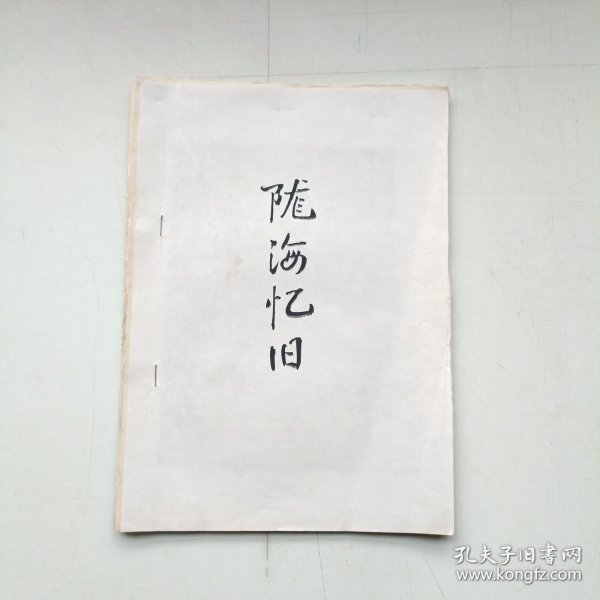 陇海忆旧
孔夫子旧书网
www.kongfz.com